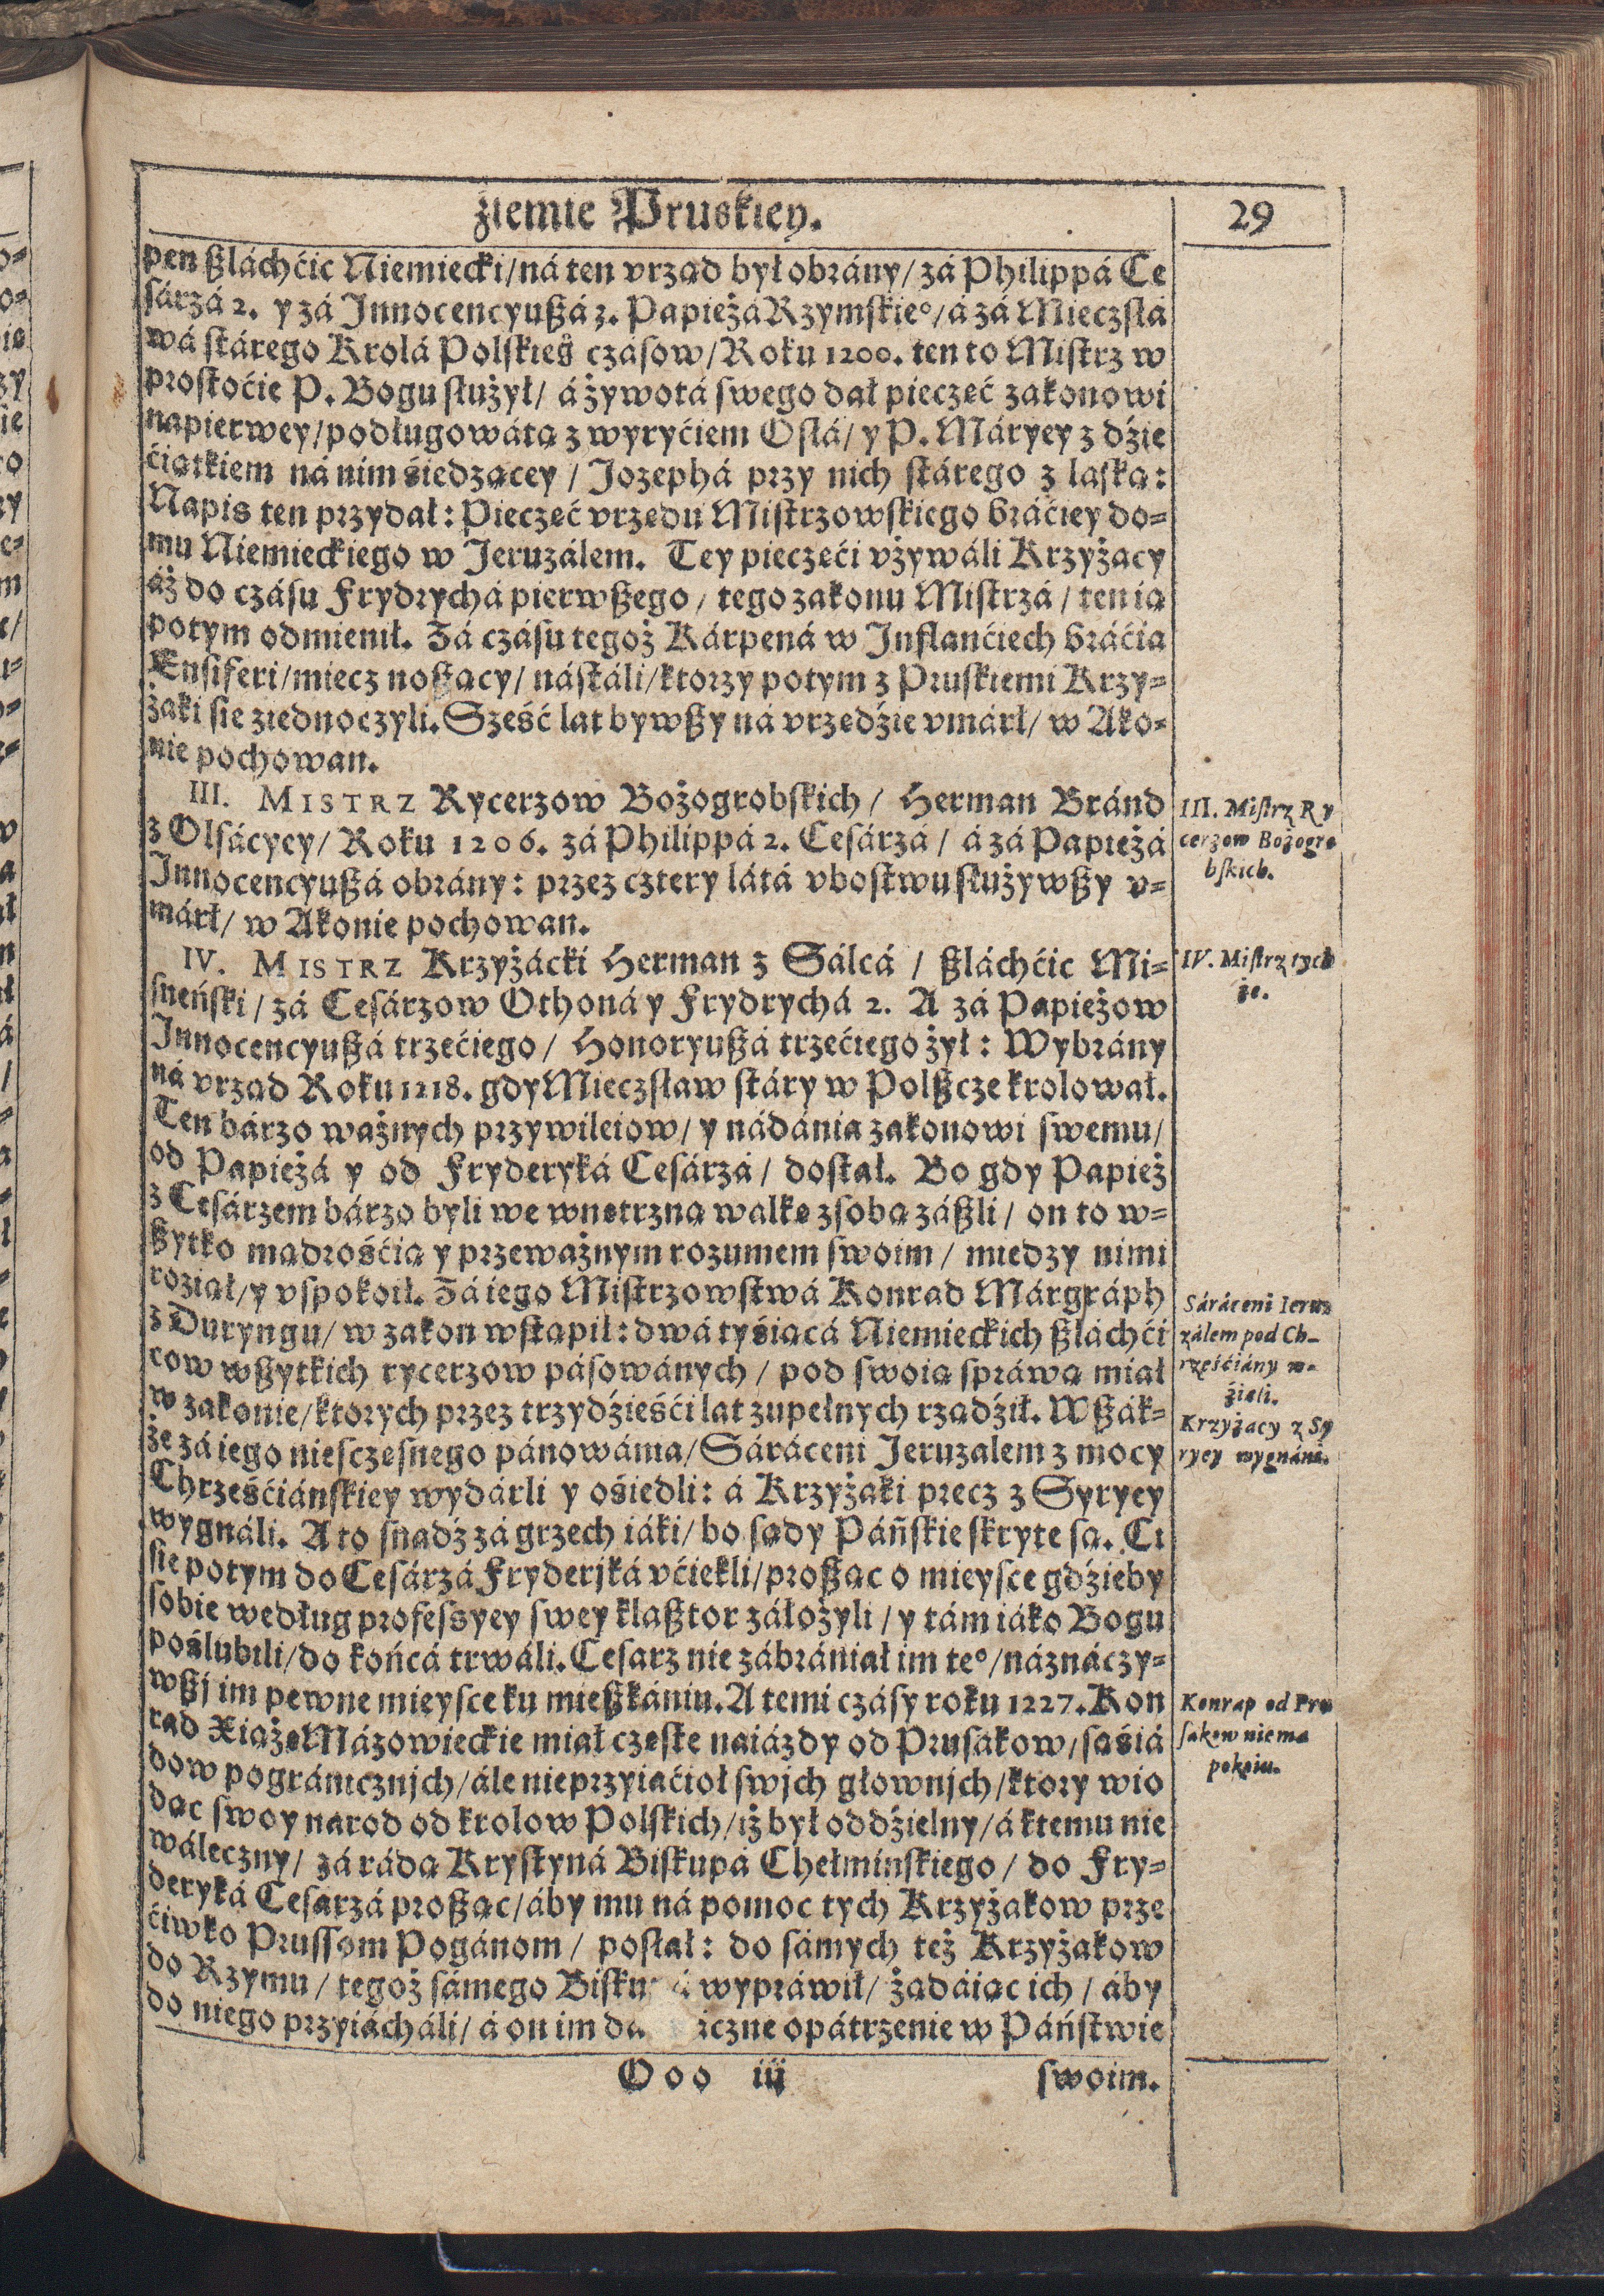 źiemie Pruskiey.
29
pen ßláchćic Niemiecki/ná ten vrząd był obrány/zá Philippá Ce
sárzá 2. y zá Innocencyußá 3. Papieżá Rzymskieº/á zá Mieczslá
wá stárego Krolá Polskieg czásow/Roku 1200. ten to Mistrz w
prostoćie P. Bogu służył/ á żywotá swego dał pieczęć zakonowi
napierwey/podługowátą z wyryćiem Oslá/ y P. Máryey z dźie
ćiątkiem ná nim śiedzącey / Jozephá przy nich stárego z laską:
Napis ten przydał: Pieczęć vrzędu Mistrzowskiego bráćiey do=
mu Niemieckiego w Jeruzálem. Tey pieczęći vżywáli Krzyżacy
áż do czásu Frydrychá pierwßego / tego zakonu Mistrzá / ten ią
potym odmienił. Zá czásu tegoż Kárpená w Inflanćiech bráćia
Ensiferi/miecz noßący/ nástáli/ktorzy potym z Pruskiemi Krzy=
żaki się ziednoczyli. Sześć lat bywßy ná vrzędźie vmárł/ w Ako=
nie pochowan.
III. MISTRZ Rycerzow Bożogrobskich / Herman Bránd
z Olsácyey/ Roku 1206. zá Philippá 2. Cesárzá / á zá Papieżá
Innocencyußá obrány: przez cztery látá vbostwu służywßy v=
márł/ w Akonie pochowan.
III. Mistrz Ry
cerzow Bożogro
bskich.
IV. MISTRZ Krzyżácki Herman z Sálcá / ßláchćic Mi=
sneński / zá Cesárzow Othoná y Frydrychá 2. A zá Papieżow
Innocencyußá trzećiego / Honoryußá trzećiego żył: Wybrány
ná vrząd Roku 1218. gdy Mieczsław stáry w Polßcze krolował.
Ten bárzo ważnych przywileiow/ y nádánia zakonowi swemu/
od Papieżá y od Fryderyká Cesárzá / dostał. Bo gdy Papież
z Cesárzem bárzo byli we wnętrzną walkę z sobą záßli / on to w=
ßytko mądrośćią y przeważnym rozumem swoim / miedzy nimi
roziął/y vspokoił. Zá iego Mistrzowstwá Konrad Márgráph
z Duryngu/ w zakon wstąpił: dwá tyśiącá Niemieckich ßláchći
cow wßytkich rycerzow pásowánych / pod swoią spráwą miał
w zakonie/ktorych przez trzydźieśći lat zupełnych rządźił. Wßák=
że zá iego niesczęsnego pánowánia/Sáráceni Jeruzalem z mocy
Chrześćiánskiey wydárli y ośiedli: á Krzyżaki precz z Syryey
wygnáli. A to snadź zá grzech iáki/ bo sądy Páńskie skryte są. Ci
się potym do Cesárzá Fryderjká vćiekli/proßąc o mieysce gdźieby
sobie według professyey swey klaßtor záłożyli / y tám iáko Bogu
poślubili/do końcá trwáli. Cesarz nie zábrániał im teº/náznáczy=
wßj im pewne mieysce ku mießkániu. A temi czásy roku 1227. Kon
rad Xiążę Mázowieckie miał częste naiázdy od Prusakow/sąśiá
dow pogránicznjch/ále nieprzyiaćioł swjch głownjch/ktory wio
dąc swoy narod od krolow Polskich/iż był oddźielny/á ktemu nie
wáleczny/ zá rádą Krystyná Biskupá Chełmińskiego / do Fry=
deryká Cesarzá proßąc/áby mu ná pomoc tych Krzyżakow prze
ćiwko Prussom Pogánom / posłał: do sámych też Krzyżakow
do Rzymu / tegoż sámego wypráwił/ żądáiąc ich / áby
do niego przyiácháli/ á on im opátrzenie w Páństwie
IV. Mistrz tych
że.
Sáráceni Ieruz
zálem pod Ch-
rześćiány w-
źieli.
Krzyżacy z Sy
ryey wygnáni.
Konrap od Pru
sakow niema
pokoiu.
Ooo iij
swoim.